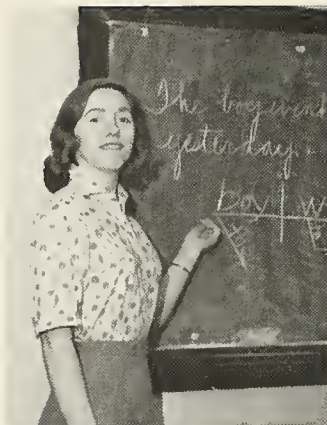 The boy went
yesterday.
boy | w